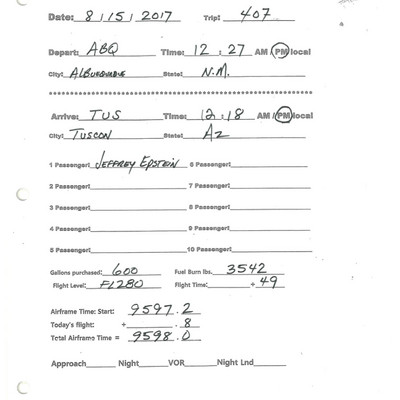 Date: 8/15/2017 Trip: 407
Depart: ABQ Time: 12:27 AM/PM local
City: ALBUQUERQUE State: N.M.
Arrive: TUS Time: 12:18 AM/PM local
City: TUSCON State: AZ
1 Passenger: JEFFREY EPSTEIN 6 Passenger:
2 Passenger: 7 Passenger:
3 Passenger: 8 Passenger:
4 Passenger: 9 Passenger:
5 Passenger: 10 Passenger:
Gallons purchased: 600 Fuel Burn lbs. 3542
Flight Level: FL280 Flight Time: + 49
Airframe Time: Start: 9597.2
Today's flight: + .8
Total Airframe Time = 9598.0
Approach Night VOR Night Lnd